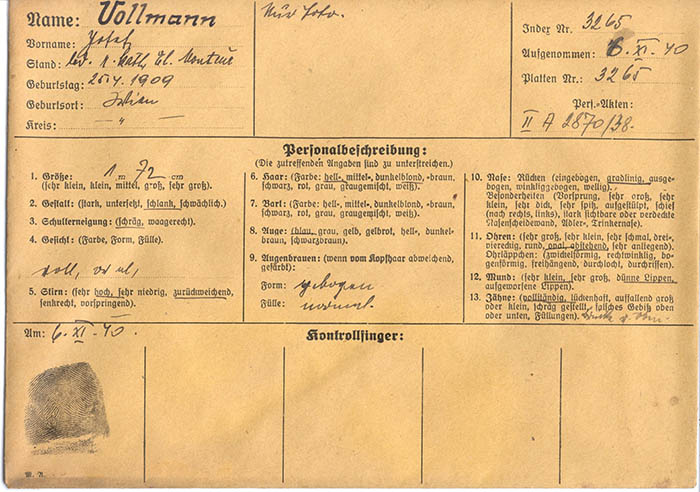 Name: Vollmann
Vorname: Josef
Stand: led. r. kath. El. Monteur
Geburtstag: 25.4.1909
Geburtsort: Wien
Kreis: "
Nur Foto.
Index Nr. 3265
Aufgenommen: 6. XI. 40
Platten Nr.: 3265
Pers.-Akten:
II A 2870/38.
Personalbeschreibung:
(Die zutreffenden Angaben sind zu unterstreichen.)
1. Größe: 1 m 72 cm
(sehr klein, klein, mittel, groß, sehr groß).
2. Gestalt: (stark, untersetzt, schlank, schwächlich.)
3. Schulterneigung: (schräg, waagerecht.)
4. Gesicht: (Farbe, Form, Fülle).
voll, oval,
5. Stirn: (sehr hoch, sehr niedrig, zurückweichend,
senkrecht, vorspringend).
6. Haar: (Farbe: hell-, mittel-, dunkelblond, -braun,
schwarz, rot, grau, graugemischt, weiß).
7. Bart: (Farbe: hell-, mittel-, dunkelblond, -braun,
schwarz, rot, grau, graugemischt, weiß).
8. Auge: (blau, grau, gelb, gelbrot, hell-, dunkel-
braun, schwarzbraun).
9. Augenbrauen: (wenn vom Kopfhaar abweichend,
gefärbt):
Form: gebogen
Fülle: normal.
10. Nase: Rücken (eingebogen, gradlinig, ausge-
bogen, winkliggebogen, wellig).
Besonderheiten (Vorsprung, sehr groß, sehr
klein, sehr dick, sehr spitz, aufgestülpt, schief
(nach rechts, links), stark sichtbare oder verdeckte
Nasenscheidewand, Adler-, Trinkernase).
11. Ohren: (sehr groß, sehr klein, sehr schmal, drei-,
viereckig, rund, oval, abstehend, sehr anliegend).
Ohrläppchen: (zwickelförmig, rechtwinklig, bo-
genförmig, freihängend, durchlocht, durchrissen).
12. Mund: (sehr klein, sehr groß, dünne Lippen,
aufgeworfene Lippen).
13. Zähne: (vollständig, lückenhaft, auffallend groß
oder klein, schräg gestellt, falsches Gebiß oben
oder unten, Füllungen).
Am: 6. XI. 40.
Kontrollfinger: